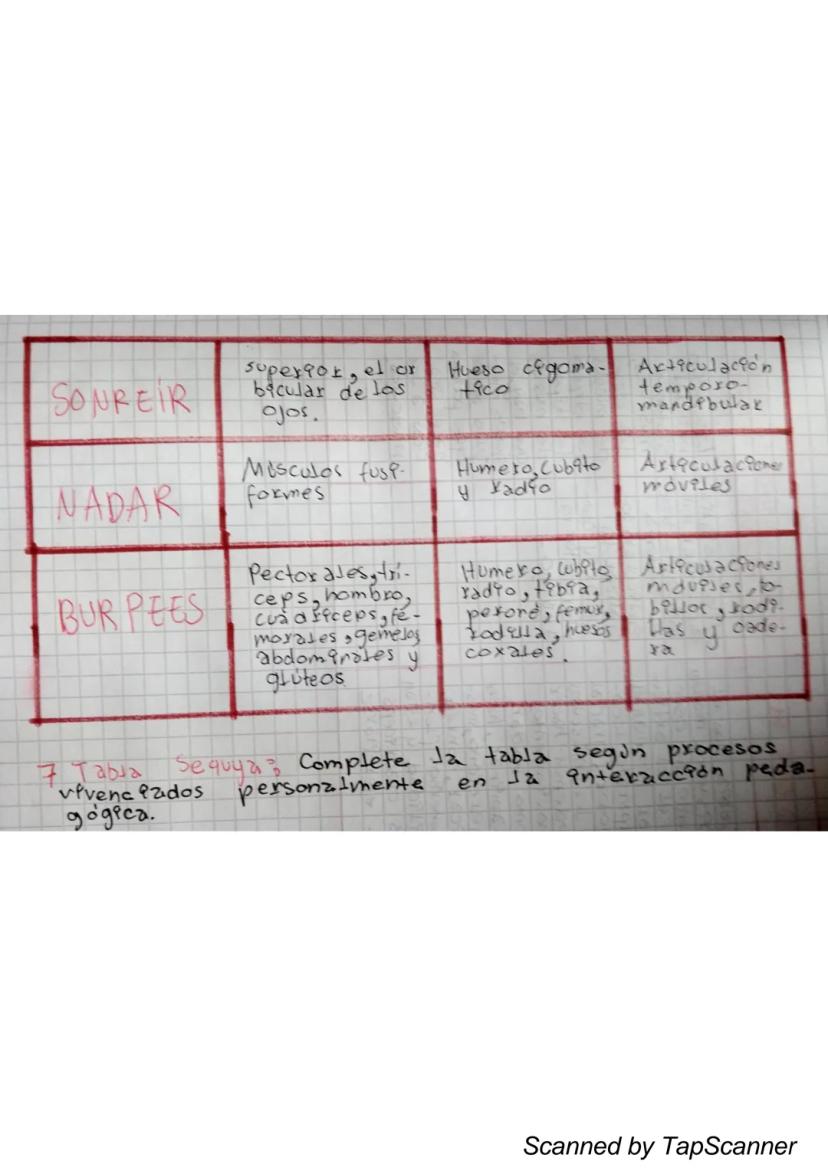 SONREÍR
superior, el or
bicular de los
ojos.
Hueso cigoma-
tico
Articulación
temporo-
mandibular
NADAR
Músculos fusi-
formes
Humero, cubito
y radio
Articulaciones
móviles
BURPEES
Pectorales, trí-
ceps, hombro,
cuádriceps, fe-
morales, gemelos
abdominales y
glúteos
Humero, cubito,
radio, tibia,
peroné, femur,
rodilla, huesos
coxales.
Articulaciones
móviles, to-
billos, rodi-
llas y cade-
ra
7 Tabla Sequya: Complete la tabla según procesos
vivenciados personalmente en la interacción peda-
gógica.
Scanned by TapScanner